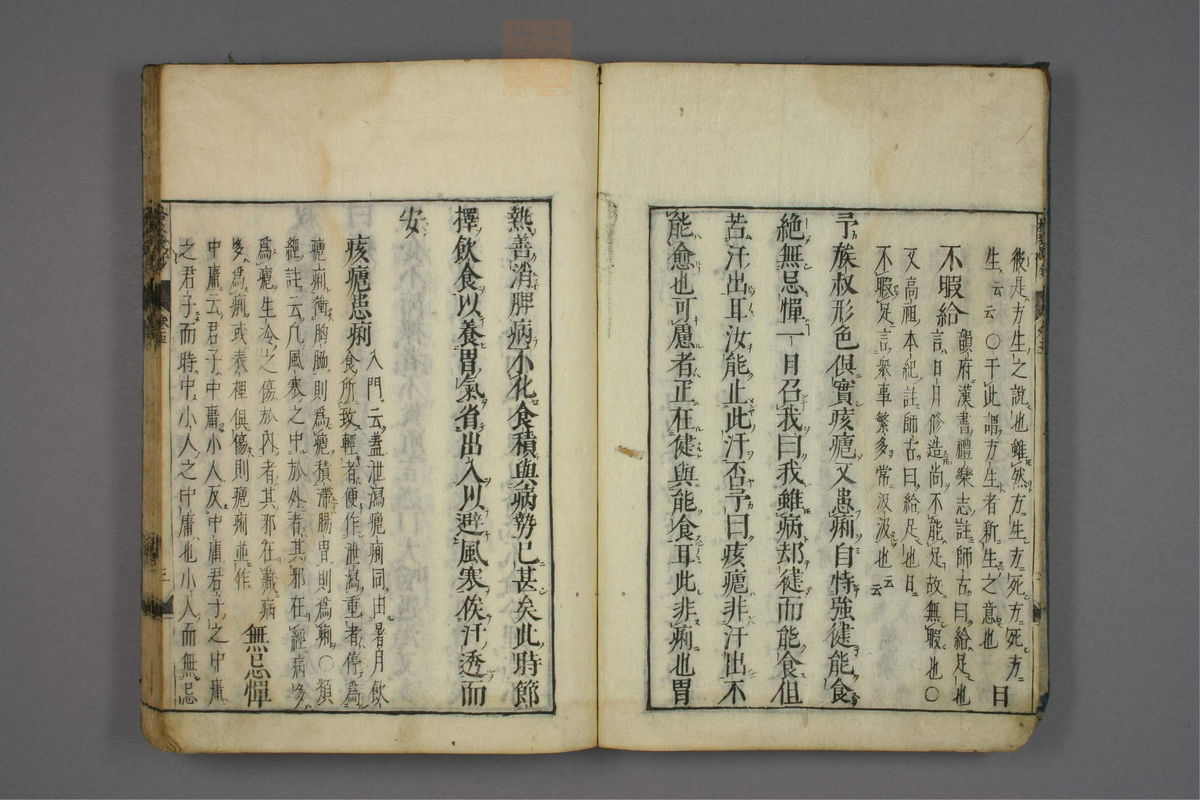 彼是方生之說也雖然方生方死方死方
生云云○干此謂方生者新生之意也 日
不暇給 韻府漢書禮樂志註師古曰給足也
言日月修造尚不能足故無暇也○
又高祖本紀註師古曰給足也日
不暇足言衆事繁多常汲汲也云云
予族叔形色俱實痎瘧又患痢自恃強健能食
絶無忌憚一日召我曰我雖病却健而能食但
苦汗出耳汝能止此汗否予曰痎瘧非汗出不
能愈也可慮者正在健與能食耳此非痢也胃
熱善消脾病不化食積與病勢已甚矣此時節
擇飲食以養胃氣省出入以避風寒候汗透而
安
痎瘧患痢 入門云蓋泄瀉瘧痢同由暑月飲
食所致輕者便作泄瀉重者停爲
瘧痢衝胸膈則爲瘧積滯腸胃則爲痢○類
經註云凡風寒之中於外者其邪在經病多
爲瘧生冷之傷於內者其邪在藏病
多爲痢或表裡俱傷則瘧痢並作 無忌憚
中庸云君子中庸小人反中庸君子之中庸
之君子而時中小人之中庸也小人而無忌